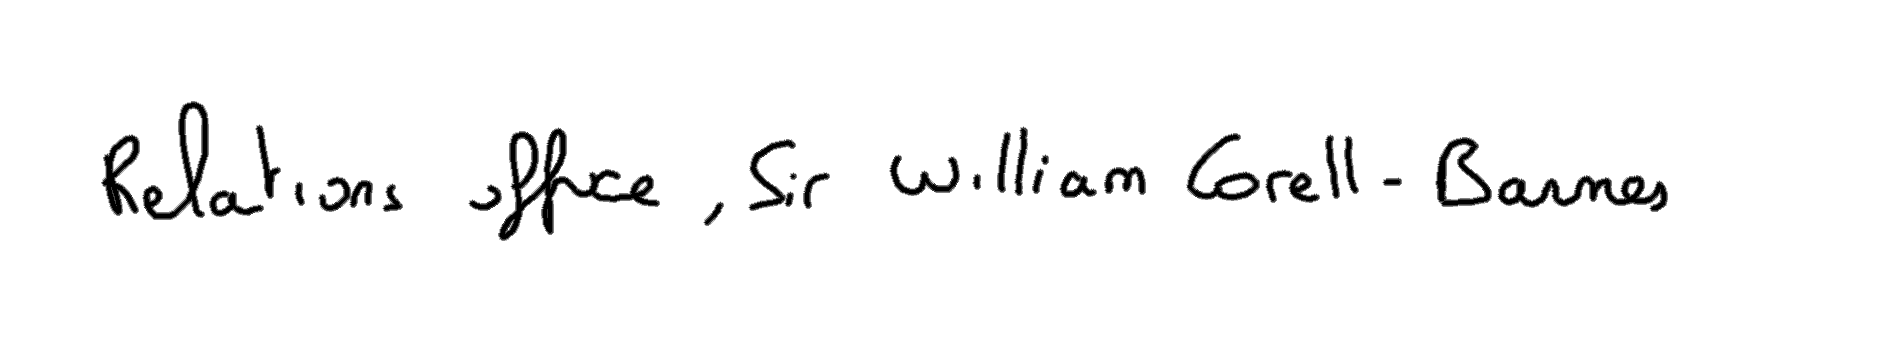 Relations office, Sir William Gorell-Barnes